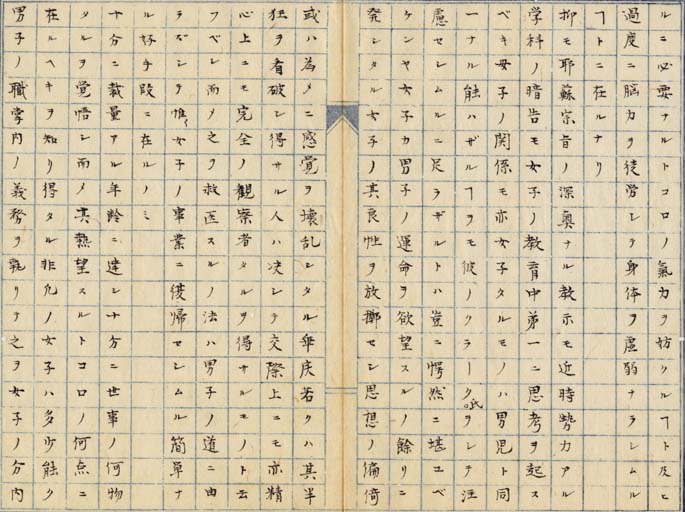 ルニ必要ナルトコロノ氣力ヲ妨クルヿト及ヒ
過度ニ腦力ヲ徒労シテ身体ヲ虚弱ナラシムル
ヿトニ在ルナリ
抑モ耶蘇宗旨ノ深奥ナル教示モ近時勢力アル
学科ノ暗告モ女子ノ教育中第一ニ思考ヲ起ス
ベキ母子ノ関係モ亦女子タルモノハ男児ト同
一ナル能ハザルヿヲモ彼ノクラーク氏ヲシテ注
慮セシムルニ足ラザルトハ豈ニ愕然ニ堪ユベ
ケンヤ女子カ男子ノ運命ヲ欲望スルノ餘リニ
発シタル女子ノ其良性ヲ放擲セシ思想ノ偏倚
或ハ為メニ感覚ヲ壊乱シタル卑戻若クハ其半
狂ヲ看破シ得サル人ハ决シテ交際上ニモ亦精
心上ニモ完全ノ観察者タルヲ得サルモノト云
フベシ而メ之ヲ救医スルノ法ハ男子ノ道ニ由
ラズシテ惟女子ノ事業ニ復帰セシムル簡単ナ
ル好手段ニ在ルノミ
十分ニ裁量アル年齢ニ達シ十分ニ世事ノ何物
タルヲ覚悟シ而メ其熱望スルトコロノ何点ニ
在ルヘキヲ知リ得タル非凡ノ女子ハ多少能ク
男子ノ職掌内ノ義務ヲ執リテ之ヲ女子ノ分内